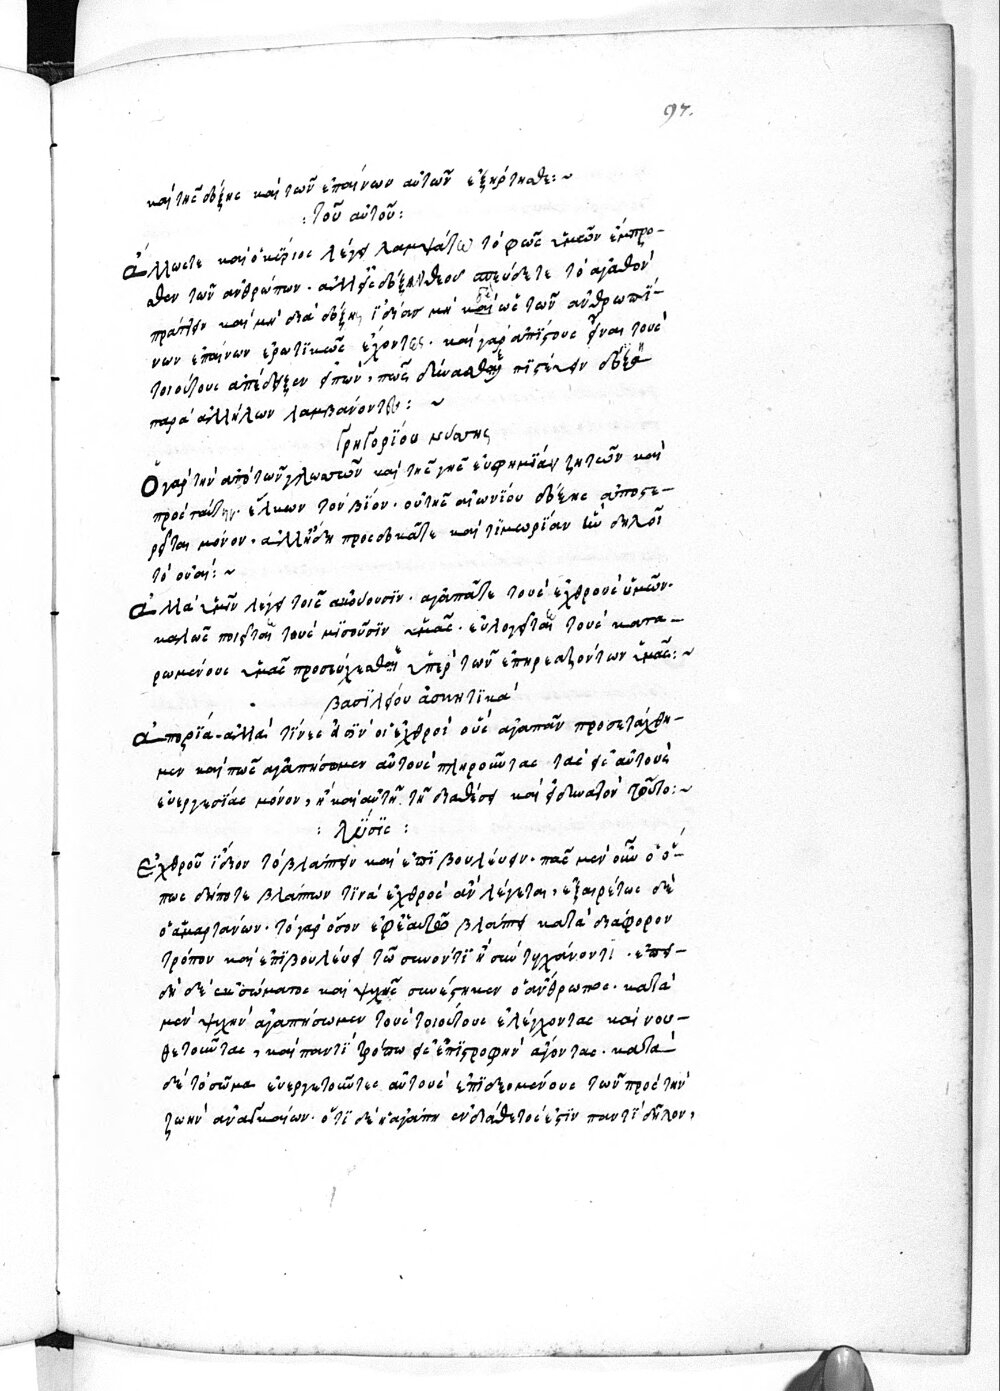 97.
καὶ τῆς δόξης καὶ τῶν ἐπαίνων αὐτῶν ἐξηρτῆσθαι :~
: τοῦ αὐτοῦ :
Ἄλλως τε καὶ ὁ κύριος λέγει λαμψάτω τὸ φῶς ὑμῶν ἔμπρο-
σθεν τῶν ἀνθρώπων. ἀλλ' εἰς δόξαν θεοῦ σπεύδετε τὸ ἀγαθὸν
πράττειν καὶ μὴ διὰ δόξης ἰδίας μὴ δὲ ὡς τῶν ἀνθρωπί-
νων ἐπαίνων ἐρωτικῶς ἔχοντες. καὶ γὰρ ἀπίστους εἶναι τοὺς
τοιούτους ἀπέδειξεν εἰπὼν, πῶς δύνασθε πιστεύειν δόξαν
παρὰ ἀλλήλων λαμβάνοντες : ~
Γρηγορίου νύσσης
Ὁ γὰρ τὴν ἀπὸ τῶν γλωσσῶν καὶ τῆς γῆς εὐφημίαν ζητῶν καὶ
πρὸς ταύτην ἕλκων τὸν βίον. οὐ τῆς αἰωνίου δόξης ἀποστε-
ρεῖται μόνον. ἀλλ' ἤδη προσδοκάτω καὶ τιμωρίαν ὡς δηλοῖ
τὸ οὐαί : ~
Ἀλλὰ ὑμῖν λέγω τοῖς ἀκούουσιν. ἀγαπᾶτε τοὺς ἐχθροὺς ὑμῶν.
καλῶς ποιεῖται τοῖς μισοῦσιν ὑμᾶς. εὐλογεῖται τοὺς κατα-
ρωμένους ὑμᾶς προσεύχεσθαι ὑπὲρ τῶν ἐπηρεαζόντων ὑμᾶς :~
Βασιλείου ἀσκητικὰ
Ἀπορία. ἀλλὰ τίνες εἰσὶν οἱ ἐχθροὶ οὓς ἀγαπᾶν προσετάχθη-
μεν καὶ πῶς ἀγαπήσομεν αὐτοὺς πληροῦντας τὰς εἰς αὐτοὺς
εὐεργεσίας μόνον, ἢ καὶ αὐτῇ τῇ διαθέσει καὶ εἰ δυνατὸν τοῦτο :~
: λύσις :
Ἐχθροῦ ἴδιον τὸ βλάπτειν καὶ ἐπιβουλεύειν. πᾶς μὲν οὖν ὁ ὅ-
πως δήποτε βλάπτων τινὰ ἐχθρὸς ἂν λέγεται, ἐξαιρέτως δὲ
ὁ ἁμαρτάνων. τὸ γὰρ ὅσον ἐφ' ἑαυτοῦ βλάπτει κατὰ διάφορον
τρόπον καὶ ἐπιβουλεύει τῷ συνόντι ἢ συντυχάνοντι. ἐπει-
δὴ δὲ ἐκ σώματος καὶ ψυχῆς συνέστηκεν ὁ ἄνθρωπος. κατὰ
μὲν ψυχὴν ἀγαπήσωμεν τοὺς τοιούτους ἐλέγχοντας καὶ νου-
θετοῦντας, καὶ παντὶ τρόπῳ εἰς ἐπιστροφὴν ἄγοντας. κατὰ
δὲ τὸ σῶμα εὐεργετοῦντες αὐτοὺς ἐπιδεομένους τῶν πρὸς τὴν
ζωὴν ἀναγκαίων. ὅτι δὲ ἡ ἀγάπη ἐν διαθέσει ἐστὶν παντὶ δῆλον,